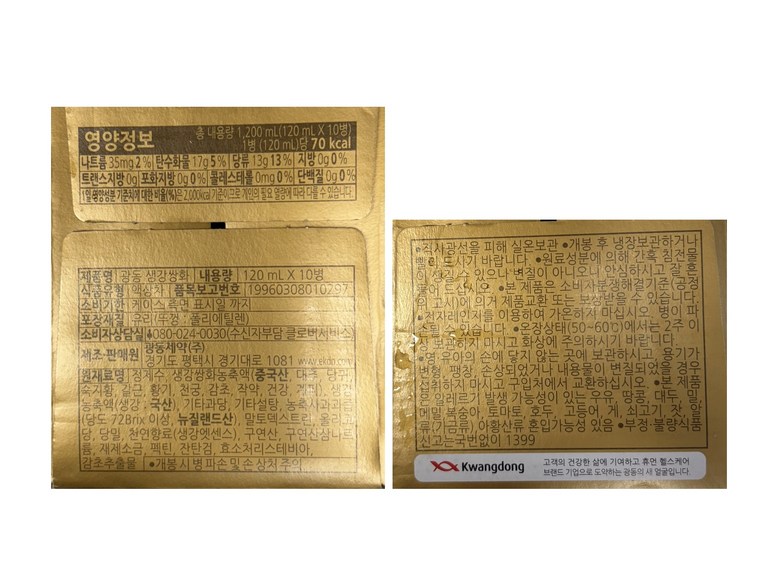 영양정보
총 내용량 1,200 mL(120 mL X 10병)
1병 (120 mL)당 70 kcal
나트륨 35mg 2% 탄수화물 17g 5% 당류 13g 13% 지방 0g 0%
트랜스지방 0g 포화지방 0g 0% 콜레스테롤 0mg 0% 단백질 0g 0%
1일 영양성분 기준치에 대한 비율(%)은 2,000kcal 기준이므로 개인의 필요 열량에 따라 다를 수 있습니다.
제품명 광동 생강쌍화 내용량 120 mL X 10병
식품유형 액상차 품목보고번호 19960308010297
소비기한 케이스 우면 표시일 까지
포장재질 유리(뚜껑 : 폴리에틸렌)
소비자상담실 080-024-0030(수신자부담 클로버서비스)
제조·판매원 광동제약(주)
경기도 평택시 경기대로 1081 www.ekdp.com
원재료명 정제수, 생강쌍화농축액(중국산, 대추, 당귀,
숙지황, 갈근, 황기, 천궁, 감초, 작약, 건강, 계피), 생강
농축액(생강 국산), 기타과당, 기타설탕, 농축사과과즙
(당도 72Brix 이상, 뉴질랜드산), 말토덱스트린, 올리고
당, 당밀, 천연향료(생강엣센스), 구연산, 구연산삼나트
륨, 재제소금, 펙틴, 잔탄검, 효소처리스테비아,
감초추출물 •개봉 시 병 파손 및 손 상처 주의
•직사광선을 피해 실온보관 •개봉 후 냉장보관하거나
빨리 드시기 바랍니다. •원료성분에 의해 간혹 침전물
이 생길 수 있으나 변질이 아니오니 안심하시고 잘 흔
들어 드십시오. •본 제품은 소비자분쟁해결기준(공정
위 고시)에 의거 제품교환 또는 보상받을 수 있습니다.
•전자레인지를 이용하여 가온하지 마십시오. 병이 파
손될 수 있습니다. •온장상태(50~60℃)에서는 2주 이
상 보관하지 마시고 화상에 주의하시기 바랍니다.
•영·유아의 손에 닿지 않는 곳에 보관하시고, 용기가
변형, 팽창, 손상되었거나 내용물이 변질되었을 경우
섭취하지 마시고 구입처에서 교환하십시오. •본 제품
은 알레르기 발생 가능성이 있는 우유, 땅콩, 대두, 밀,
메밀, 복숭아, 토마토, 호두, 고등어, 게, 쇠고기, 잣, 알
류(가금류), 아황산류 혼입가능성 있음 •부정·불량식품
신고는 국번없이 1399
Kwangdong
고객의 건강한 삶에 기여하고, 휴먼 헬스케어
브랜드 기업으로 도약하는 광동의 새 얼굴입니다.